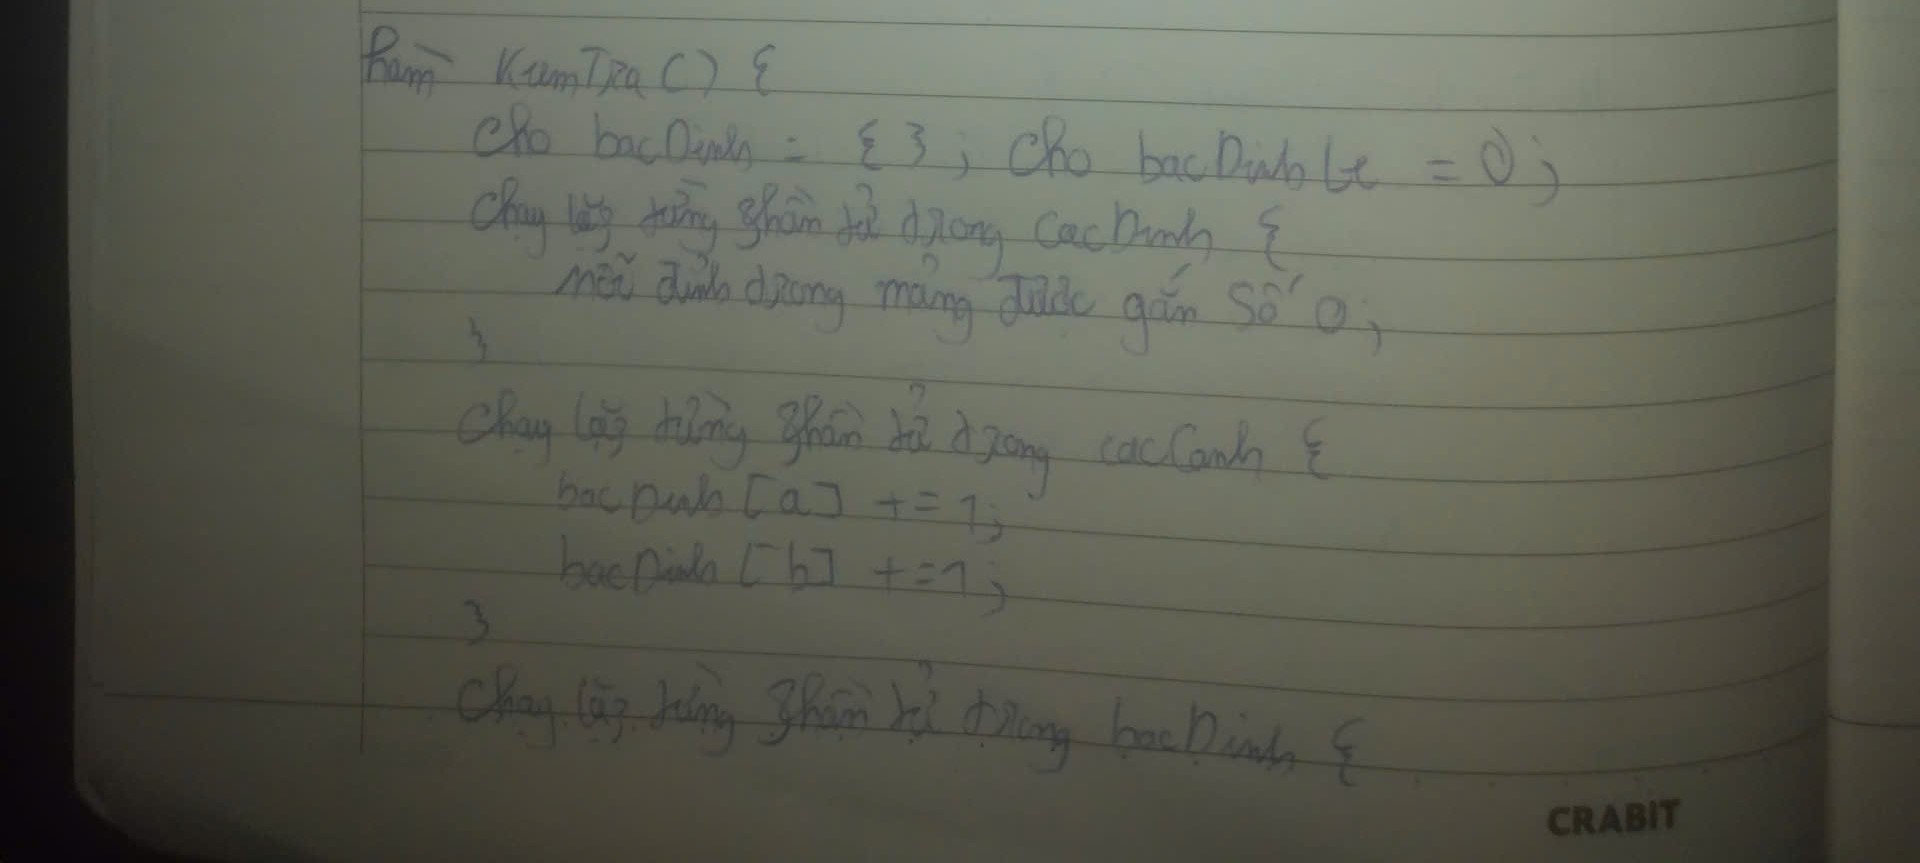 hàm KiemTra() {
cho bacDinh = {}; cho bacDinhLe = 0;
chạy lặp từng phần tử trong cacDinh {
mỗi đỉnh trong mảng được gán số 0;
}
chạy lặp từng phần tử trong cacCanh {
bacDinh[a] += 1;
bacDinh[b] += 1;
}
chạy lặp từng phần tử trong bacDinh {
CRABIT